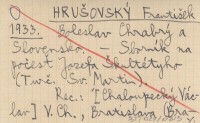 HRUŠOVSKÝ František
1933.
Boleslav Chrabrý a
Slovensko. – Sborník na
počest Jozefa Škultétyho
(Turč. Sv. Martin).
Rec.: [Chaloupecký Vác-
lav] V. Ch., Bratislava (Bra-